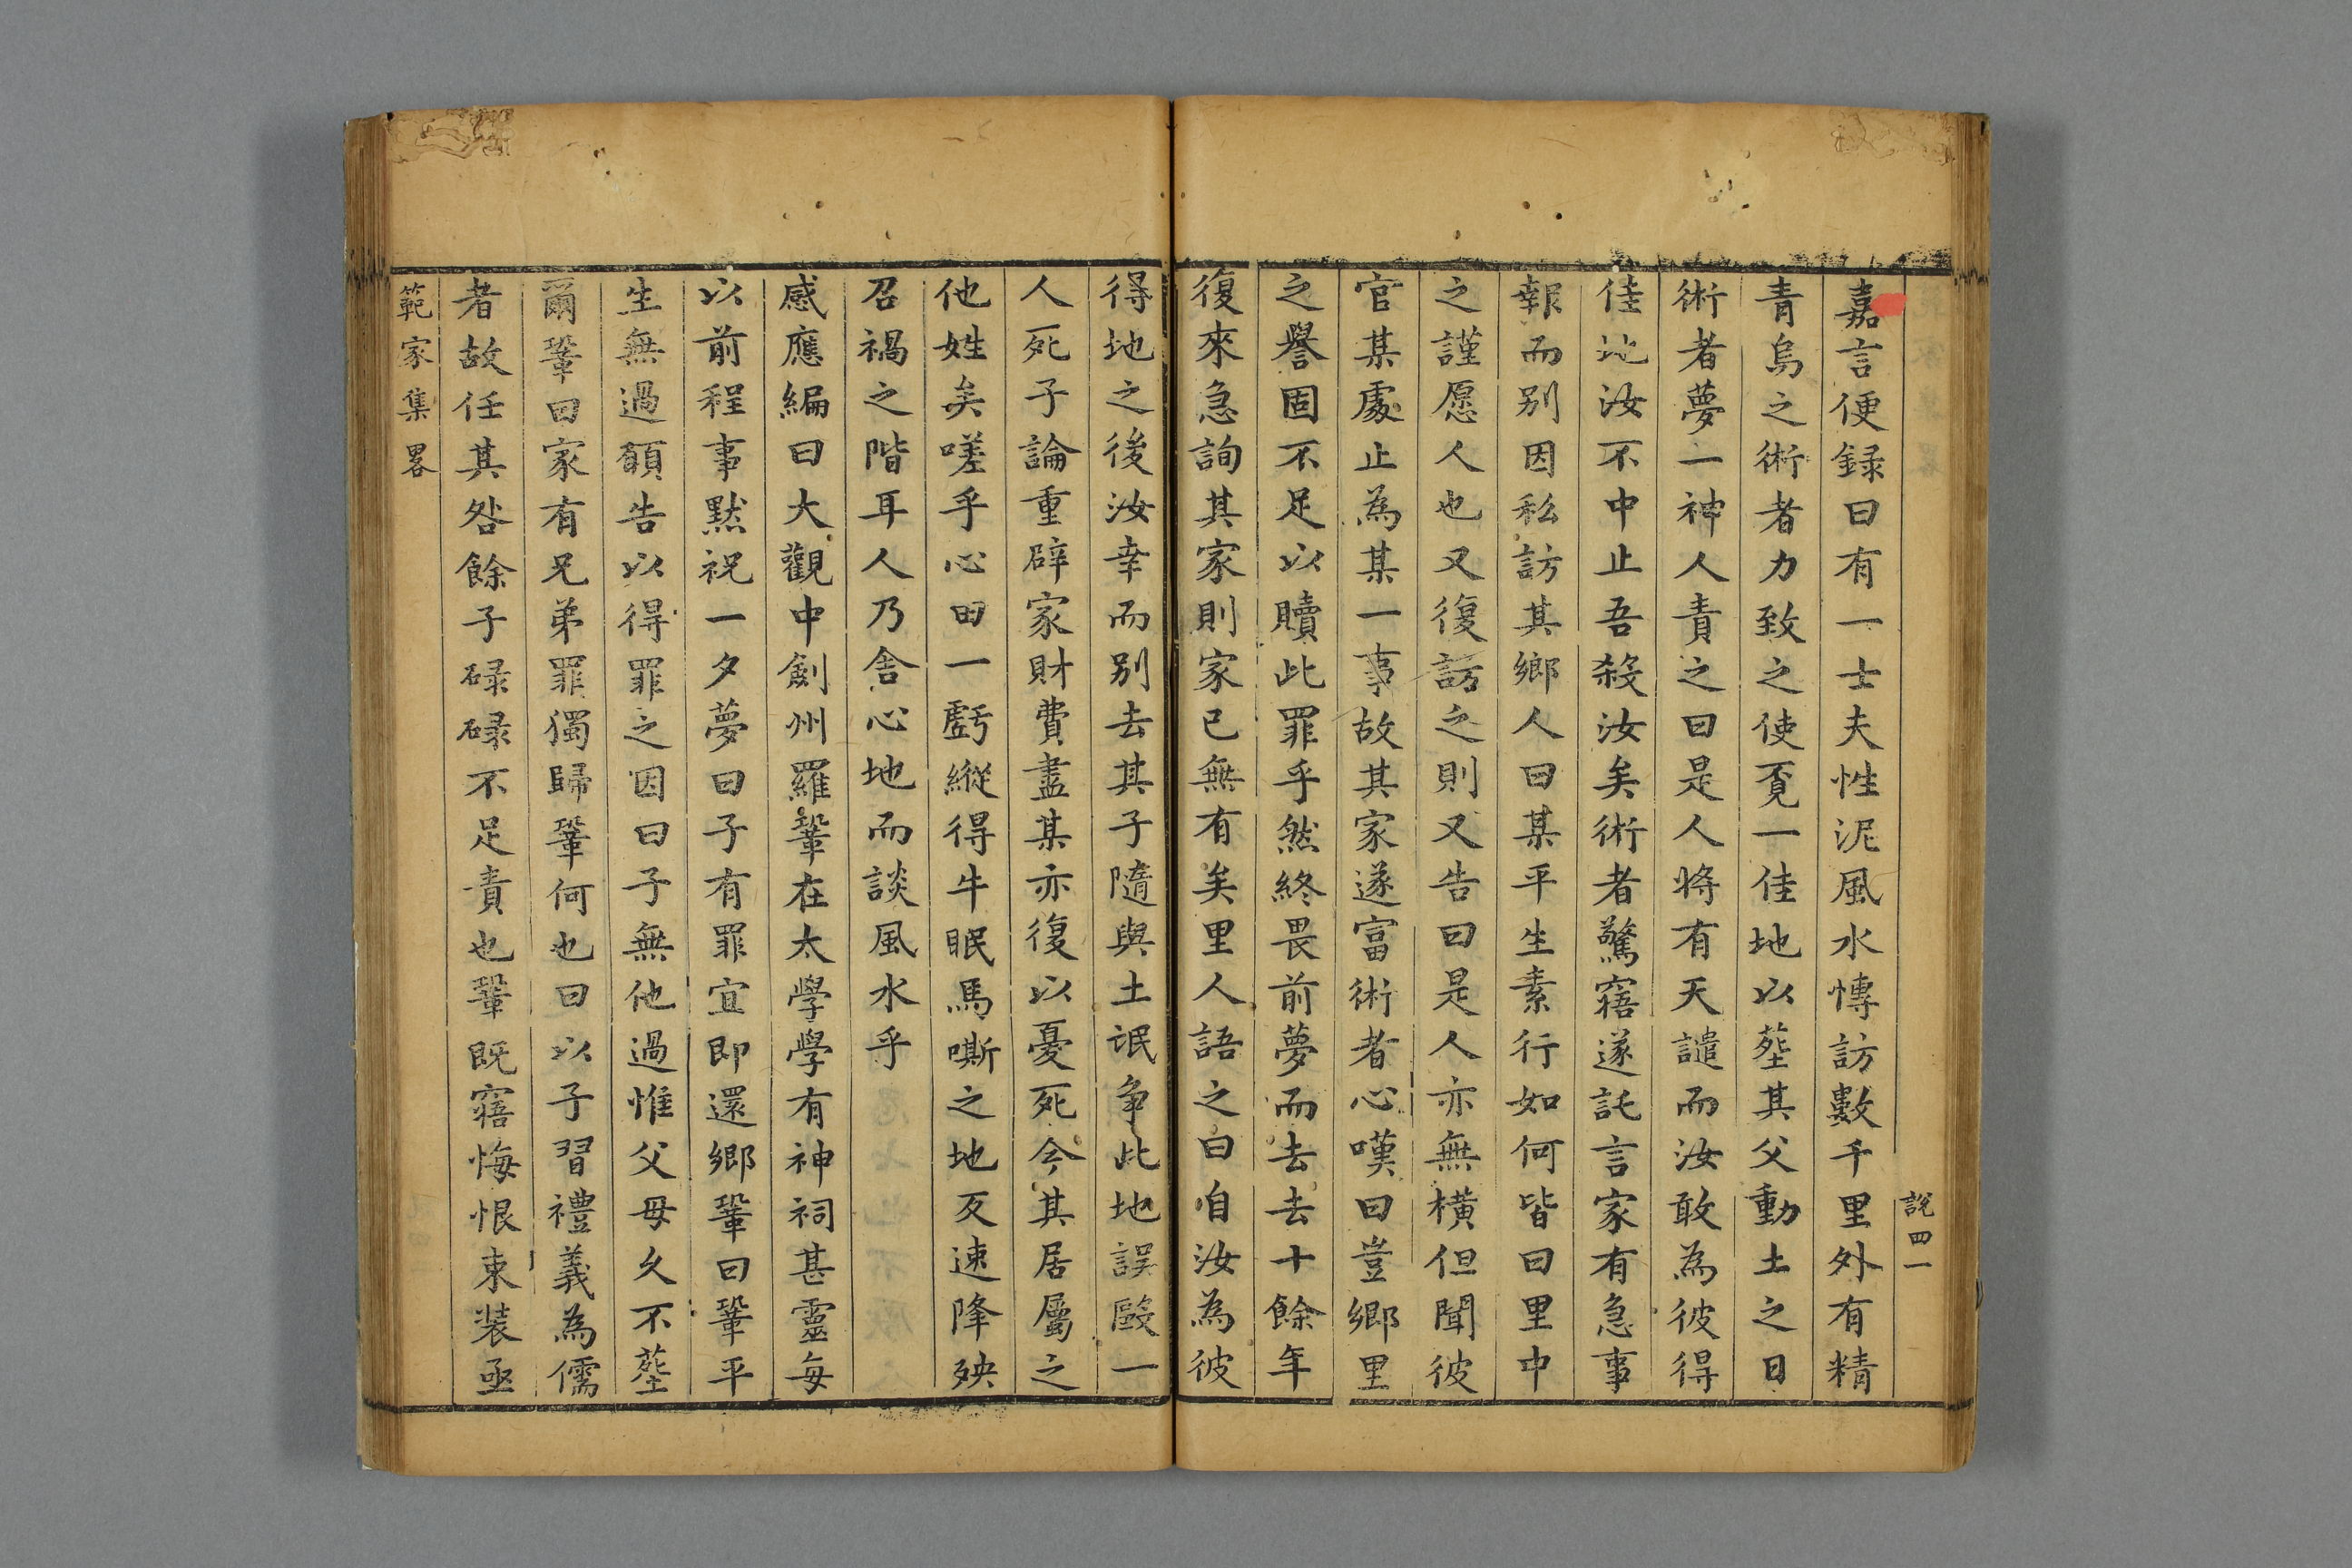 說四一
嘉言便録曰有一士夫性泥風水慱訪數千里外有精
青烏之術者力致之使覓一佳地以塟其父動土之日
術者夢一神人責之曰是人将有天譴而汝敢為彼得
佳地汝不中止吾殺汝矣術者驚寤遂託言家有急事
報而别因私訪其鄉人曰某平生素行如何皆曰里中
之謹愿人也又復訪之則又告曰是人亦無横但聞彼
官某處止為某一事故其家遂富術者心嘆曰豈鄉里
之譽固不足以贖此罪乎然終畏前夢而去去十餘年
復來急詢其家則家已無有矣里人語之曰咱汝為彼
得地之後汝幸而别去其子隨與土氓争此地誤毆一
人死子論重辟家財費盡某亦復以憂死今其居屬之
他姓矣嗟乎心田一虧縱得牛眠馬嘶之地反速降殃
召禍之階耳人乃舍心地而談風水乎
感應編曰大觀中劍州羅鞏在太學學有神祠甚靈每
以前程事默祝一夕夢曰子有罪宜即還鄉鞏曰鞏平
生無過願告以得罪之因曰子無他過惟父母久不塟
爾鞏曰家有兄弟罪獨歸鞏何也曰以子習禮義為儒
者故任其咎餘子碌碌不足責也鞏既寤悔恨束装亟
範家集畧